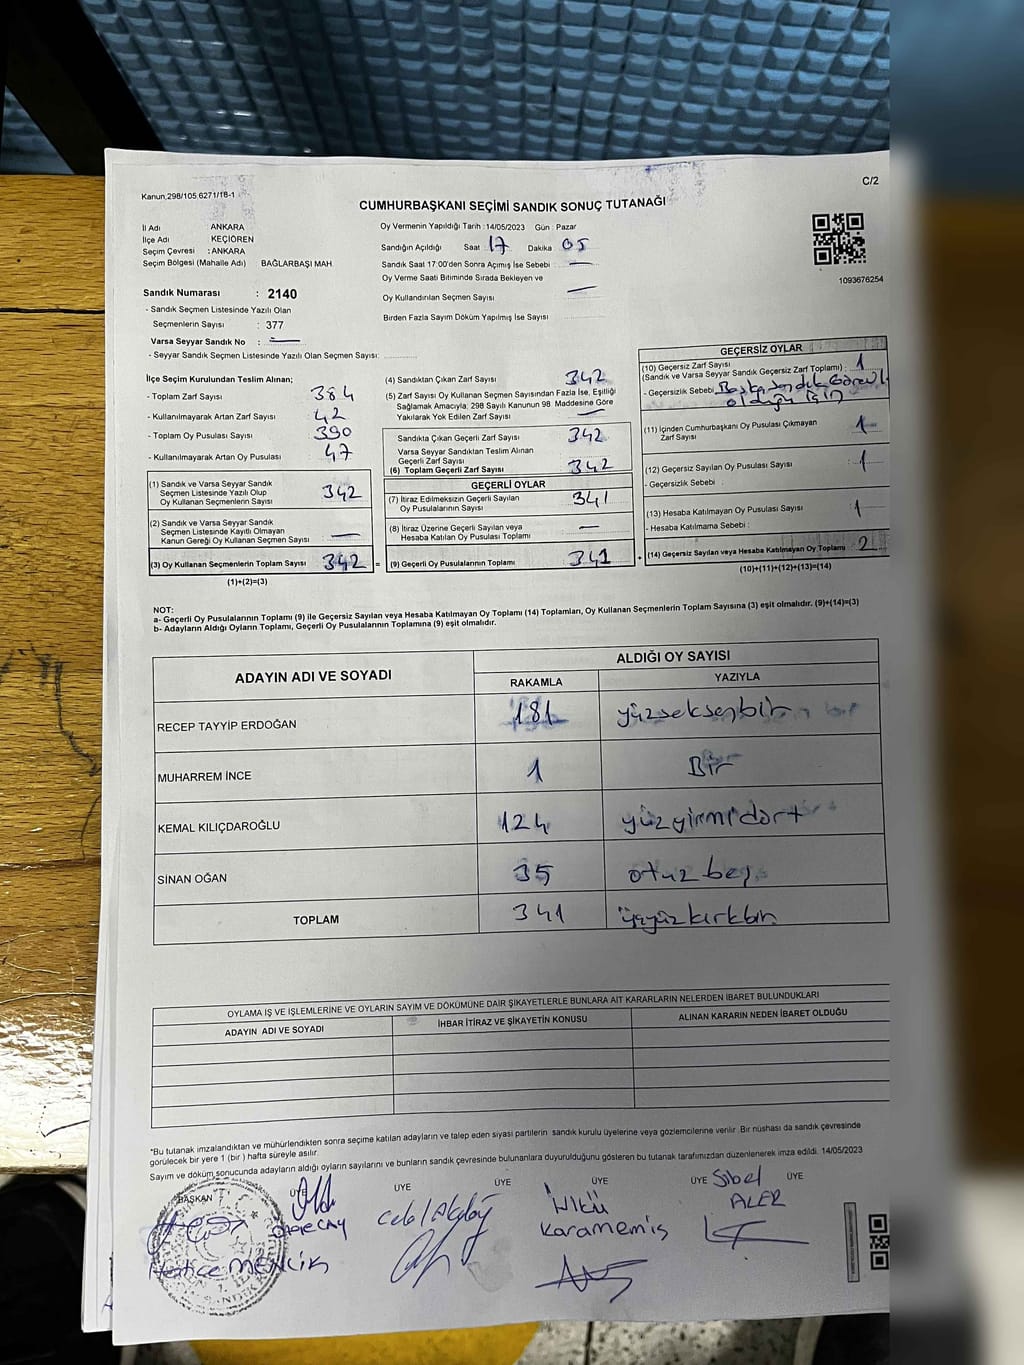 Kanun,298/105.6271/18-1
C/2
CUMHURBAŞKANI SEÇİMİ SANDIK SONUÇ TUTANAĞI
İl Adı ANKARA
İlçe Adı KEÇİÖREN
Seçim Çevresi : ANKARA
Seçim Bölgesi (Mahalle Adı) BAĞLARBAŞI MAH.
Oy Vermenin Yapıldığı Tarih : 14/05/2023 Gün : Pazar
Sandığın Açıldığı Saat 17 Dakika 05
Sandık Saat 17:00'den Sonra Açımış İse Sebebi —
Oy Verme Saati Bitiminde Sırada Bekleyen ve
Oy Kullandırılan Seçmen Sayısı —
Birden Fazla Sayım Döküm Yapılmış İse Sayısı
1093676254
Sandık Numarası : 2140
- Sandık Seçmen Listesinde Yazılı Olan
Seçmenlerin Sayısı : 377
Varsa Seyyar Sandık No : —
- Seyyar Sandık Seçmen Listesinde Yazılı Olan Seçmen Sayısı:
İlçe Seçim Kurulundan Teslim Alınan;
- Toplam Zarf Sayısı 384
- Kullanılmayarak Artan Zarf Sayısı 42
- Toplam Oy Pusulası Sayısı 390
- Kullanılmayarak Artan Oy Pusulası 47
(1) Sandık ve Varsa Seyyar Sandık
Seçmen Listesinde Yazılı Olup
Oy Kullanan Seçmenlerin Sayısı 342
(2) Sandık ve Varsa Seyyar Sandık
Seçmen Listesinde Kayıtlı Olmayan
Kanun Gereği Oy Kullanan Seçmen Sayısı —
(3) Oy Kullanan Seçmenlerin Toplam Sayısı 342 =
(1)+(2)=(3)
(4) Sandıktan Çıkan Zarf Sayısı 342
(5) Zarf Sayısı Oy Kullanan Seçmen Sayısından Fazla İse, Eşitliği
Sağlamak Amacıyla; 298 Sayılı Kanunun 98. Maddesine Göre
Yakılarak Yok Edilen Zarf Sayısı —
Sandıkta Çıkan Geçerli Zarf Sayısı 342
Varsa Seyyar Sandıktan Teslim Alınan
Geçerli Zarf Sayısı
(6) Toplam Geçerli Zarf Sayısı 342
GEÇERLİ OYLAR
(7) İtiraz Edilmeksizin Geçerli Sayılan
Oy Pusulalarının Sayısı 341
(8) İtiraz Üzerine Geçerli Sayılan veya
Hesaba Katılan Oy Pusulası Toplamı —
(9) Geçerli Oy Pusulalarının Toplamı 341 +
GEÇERSİZ OYLAR
(10) Geçersiz Zarf Sayısı 1
(Sandık ve Varsa Seyyar Sandık Geçersiz Zarf Toplamı) :
- Geçersizlik Sebebi Başka sandık Görevli
olduğu için
(11) İçinden Cumhurbaşkanı Oy Pusulası Çıkmayan
Zarf Sayısı 1
(12) Geçersiz Sayılan Oy Pusulası Sayısı 1
- Geçersizlik Sebebi :
(13) Hesaba Katılmayan Oy Pusulası Sayısı 1
- Hesaba Katılmama Sebebi :
(14) Geçersiz Sayılan veya Hesaba Katılmayan Oy Toplamı 2
(10)+(11)+(12)+(13)=(14)
NOT:
a- Geçerli Oy Pusulalarının Toplamı (9) ile Geçersiz Sayılan veya Hesaba Katılmayan Oy Toplamı (14) Toplamları, Oy Kullanan Seçmenlerin Toplam Sayısına (3) eşit olmalıdır. (9)+(14)=(3)
b- Adayların Aldığı Oyların Toplamı, Geçerli Oy Pusulalarının Toplamına (9) eşit olmalıdır.
ADAYIN ADI VE SOYADI ALDIĞI OY SAYISI
RAKAMLA YAZIYLA
RECEP TAYYİP ERDOĞAN 181 yüzseksenbir
MUHARREM İNCE 1 Bir
KEMAL KILIÇDAROĞLU 124 yüzyirmidört
SİNAN OĞAN 35 otuzbeş
TOPLAM 341 üçyüzkırkbir
OYLAMA İŞ VE İŞLEMLERİNE VE OYLARIN SAYIM VE DÖKÜMÜNE DAİR ŞİKAYETLERLE BUNLARA AİT KARARLARIN NELERDEN İBARET BULUNDUKLARI
ADAYIN ADI VE SOYADI İHBAR İTİRAZ VE ŞİKAYETİN KONUSU ALINAN KARARIN NEDEN İBARET OLDUĞU
*Bu tutanak imzalandıktan ve mühürlendikten sonra seçime katılan adayların ve talep eden siyasi partilerin sandık kurulu üyelerine veya gözlemcilerine verilir. Bir nüshası da sandık çevresinde
görülecek bir yere 1 (bir ) hafta süreyle asılır.
Sayım ve döküm sonucunda adayların aldığı oyların sayılarını ve bunların sandık çevresinde bulunanlara duyurulduğunu gösteren bu tutanak tarafımızdan düzenlenerek imza edildi. 14/05/2023
BAŞKAN ÜYE ÜYE ÜYE ÜYE ÜYE ÜYE
Sibel
ALER
Ülkü
Karamemiş
Hatice